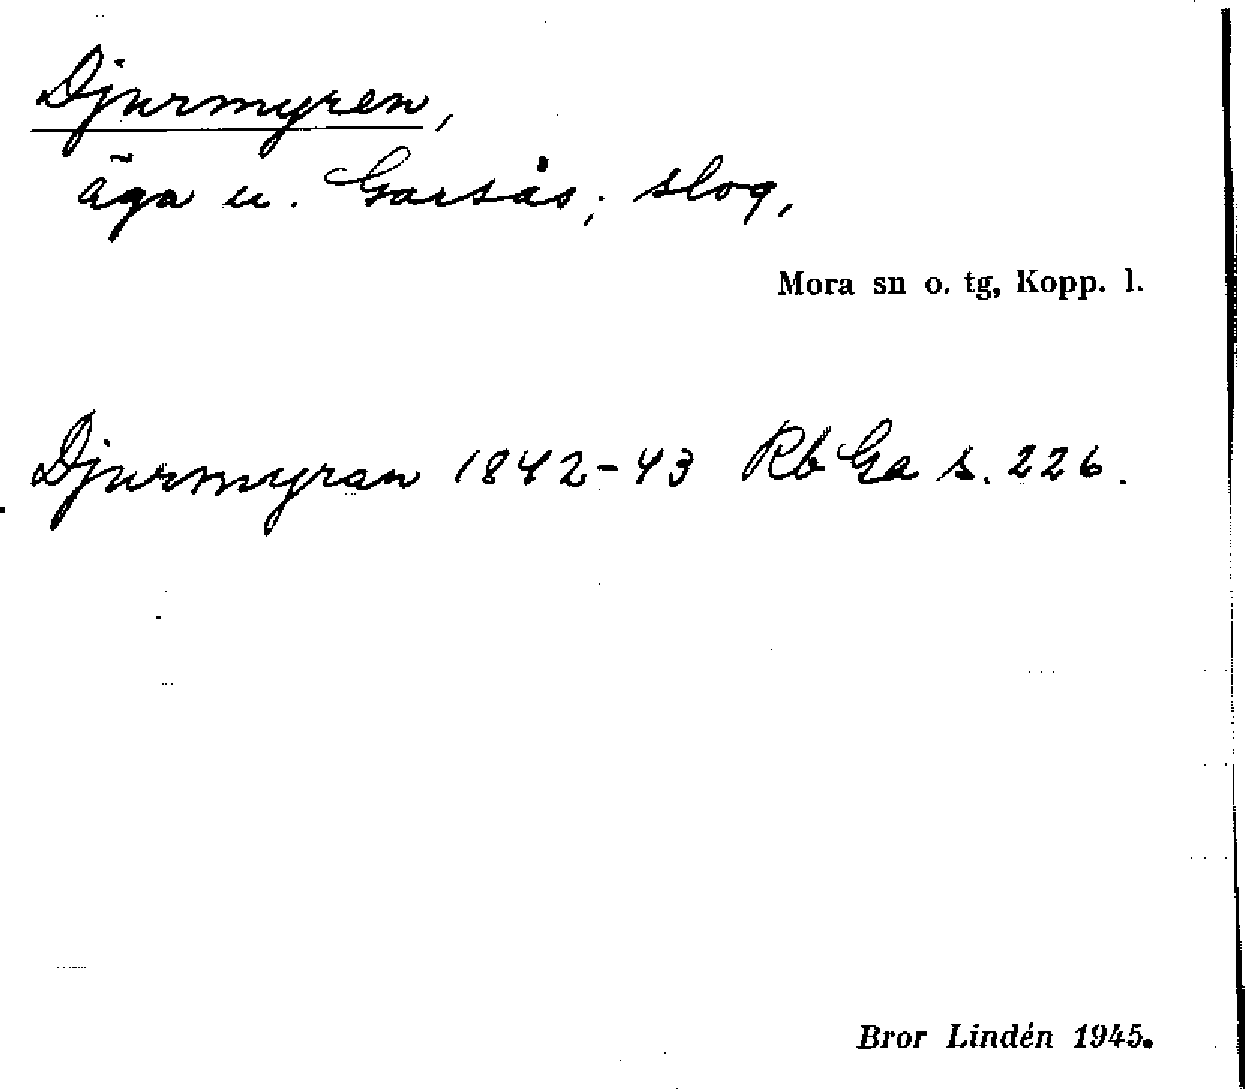 Djurmyren,
äga u. Garsås; slog,
Mora sn o. tg, Kopp. l.
Djurmyran 1842-43 Rb Ga s. 226.
Bror Lindén 1945.